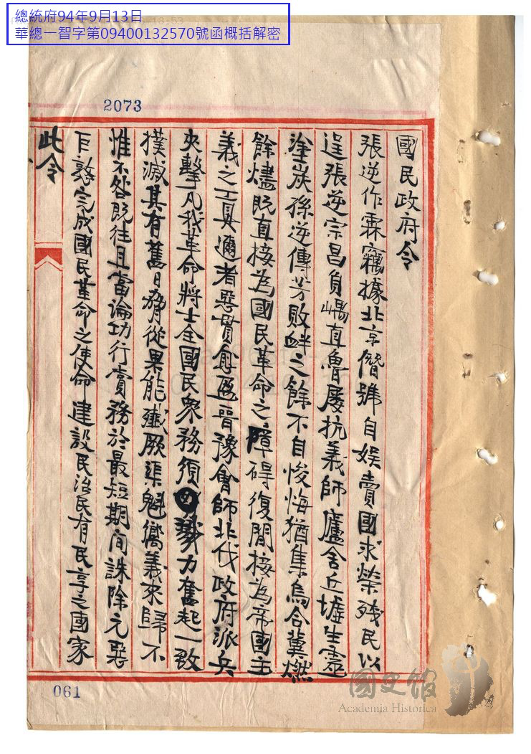 總統府94年9月13日
華總一智字第09400132570號函概括解密
2073
國民政府令
張逆作霖竊據北京僭號自娛賣國求榮殘民以
逞張逆宗昌負嵎直魯屢抗義師廬舍丘墟生靈
塗炭孫逆傳芳敗衂之餘不自悛悔猶集烏合冀燃
餘燼既直接為國民革命之障碍復間接為帝國主
義之工具邇者惡貫愈盈晉豫會師北伐政府派兵
夾擊凡我革命將士全國民衆務須戮力奮起一致
撲滅其有舊日脅從果能殲厥渠魁嚮義來歸不
惟不咎既往且當論功行賞務於最短期間誅除元惡
巨憝完成國民革命之使命建設民治民有民享之國家
此令
061
國史館
Academia Historica